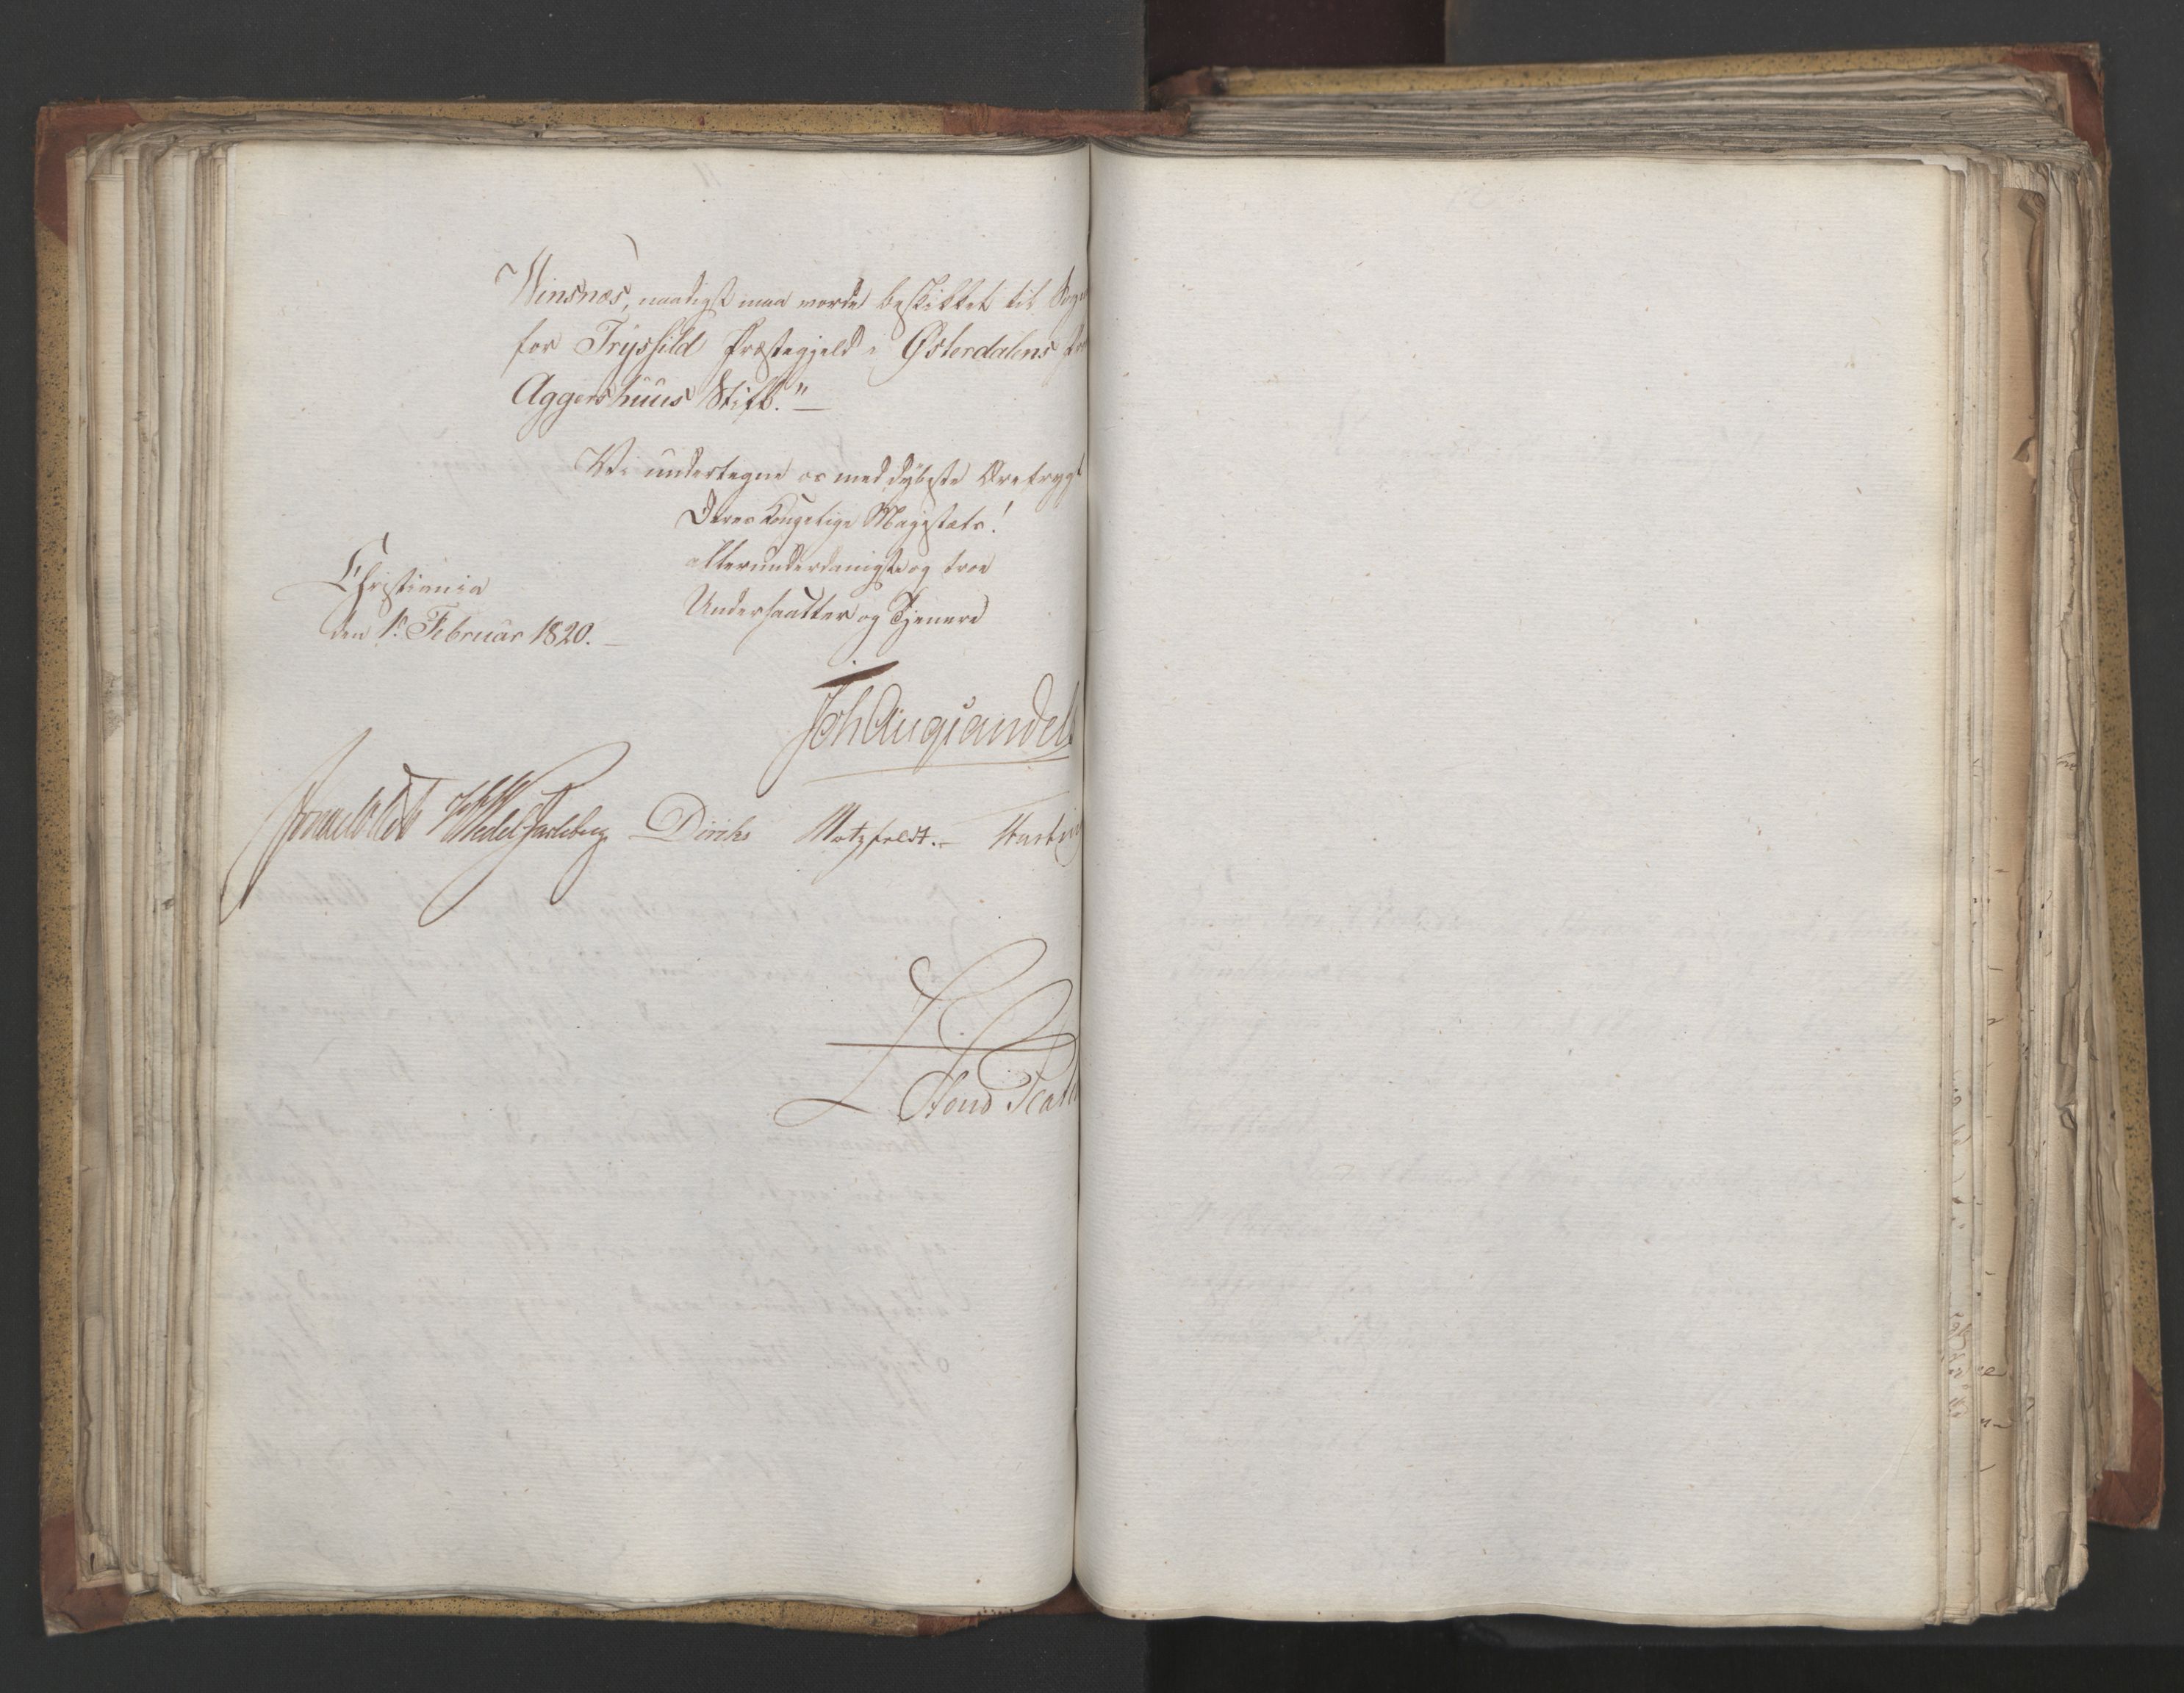 Winsnes, naadigst maa vorde beskikket til Sogn
for Tryssild Præstegjeld i Østerdalens Pro
Aggershuus Stift."—
Vi undertegne os med dybeste Ærefrygt
Deres Kongelige Majestæts!
allerunderdanigste og troe
Undersaatter og Tjenere
Christiania
den 1ste Februar 1820.—
Joh Aug Sandels
Sommerhielm HWedelJarlsberg Diriks Motzfeldt.—